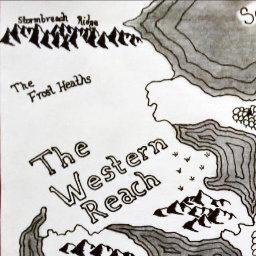 Stormbreach Ridge
The
Frost Heaths
The
Western
Reach